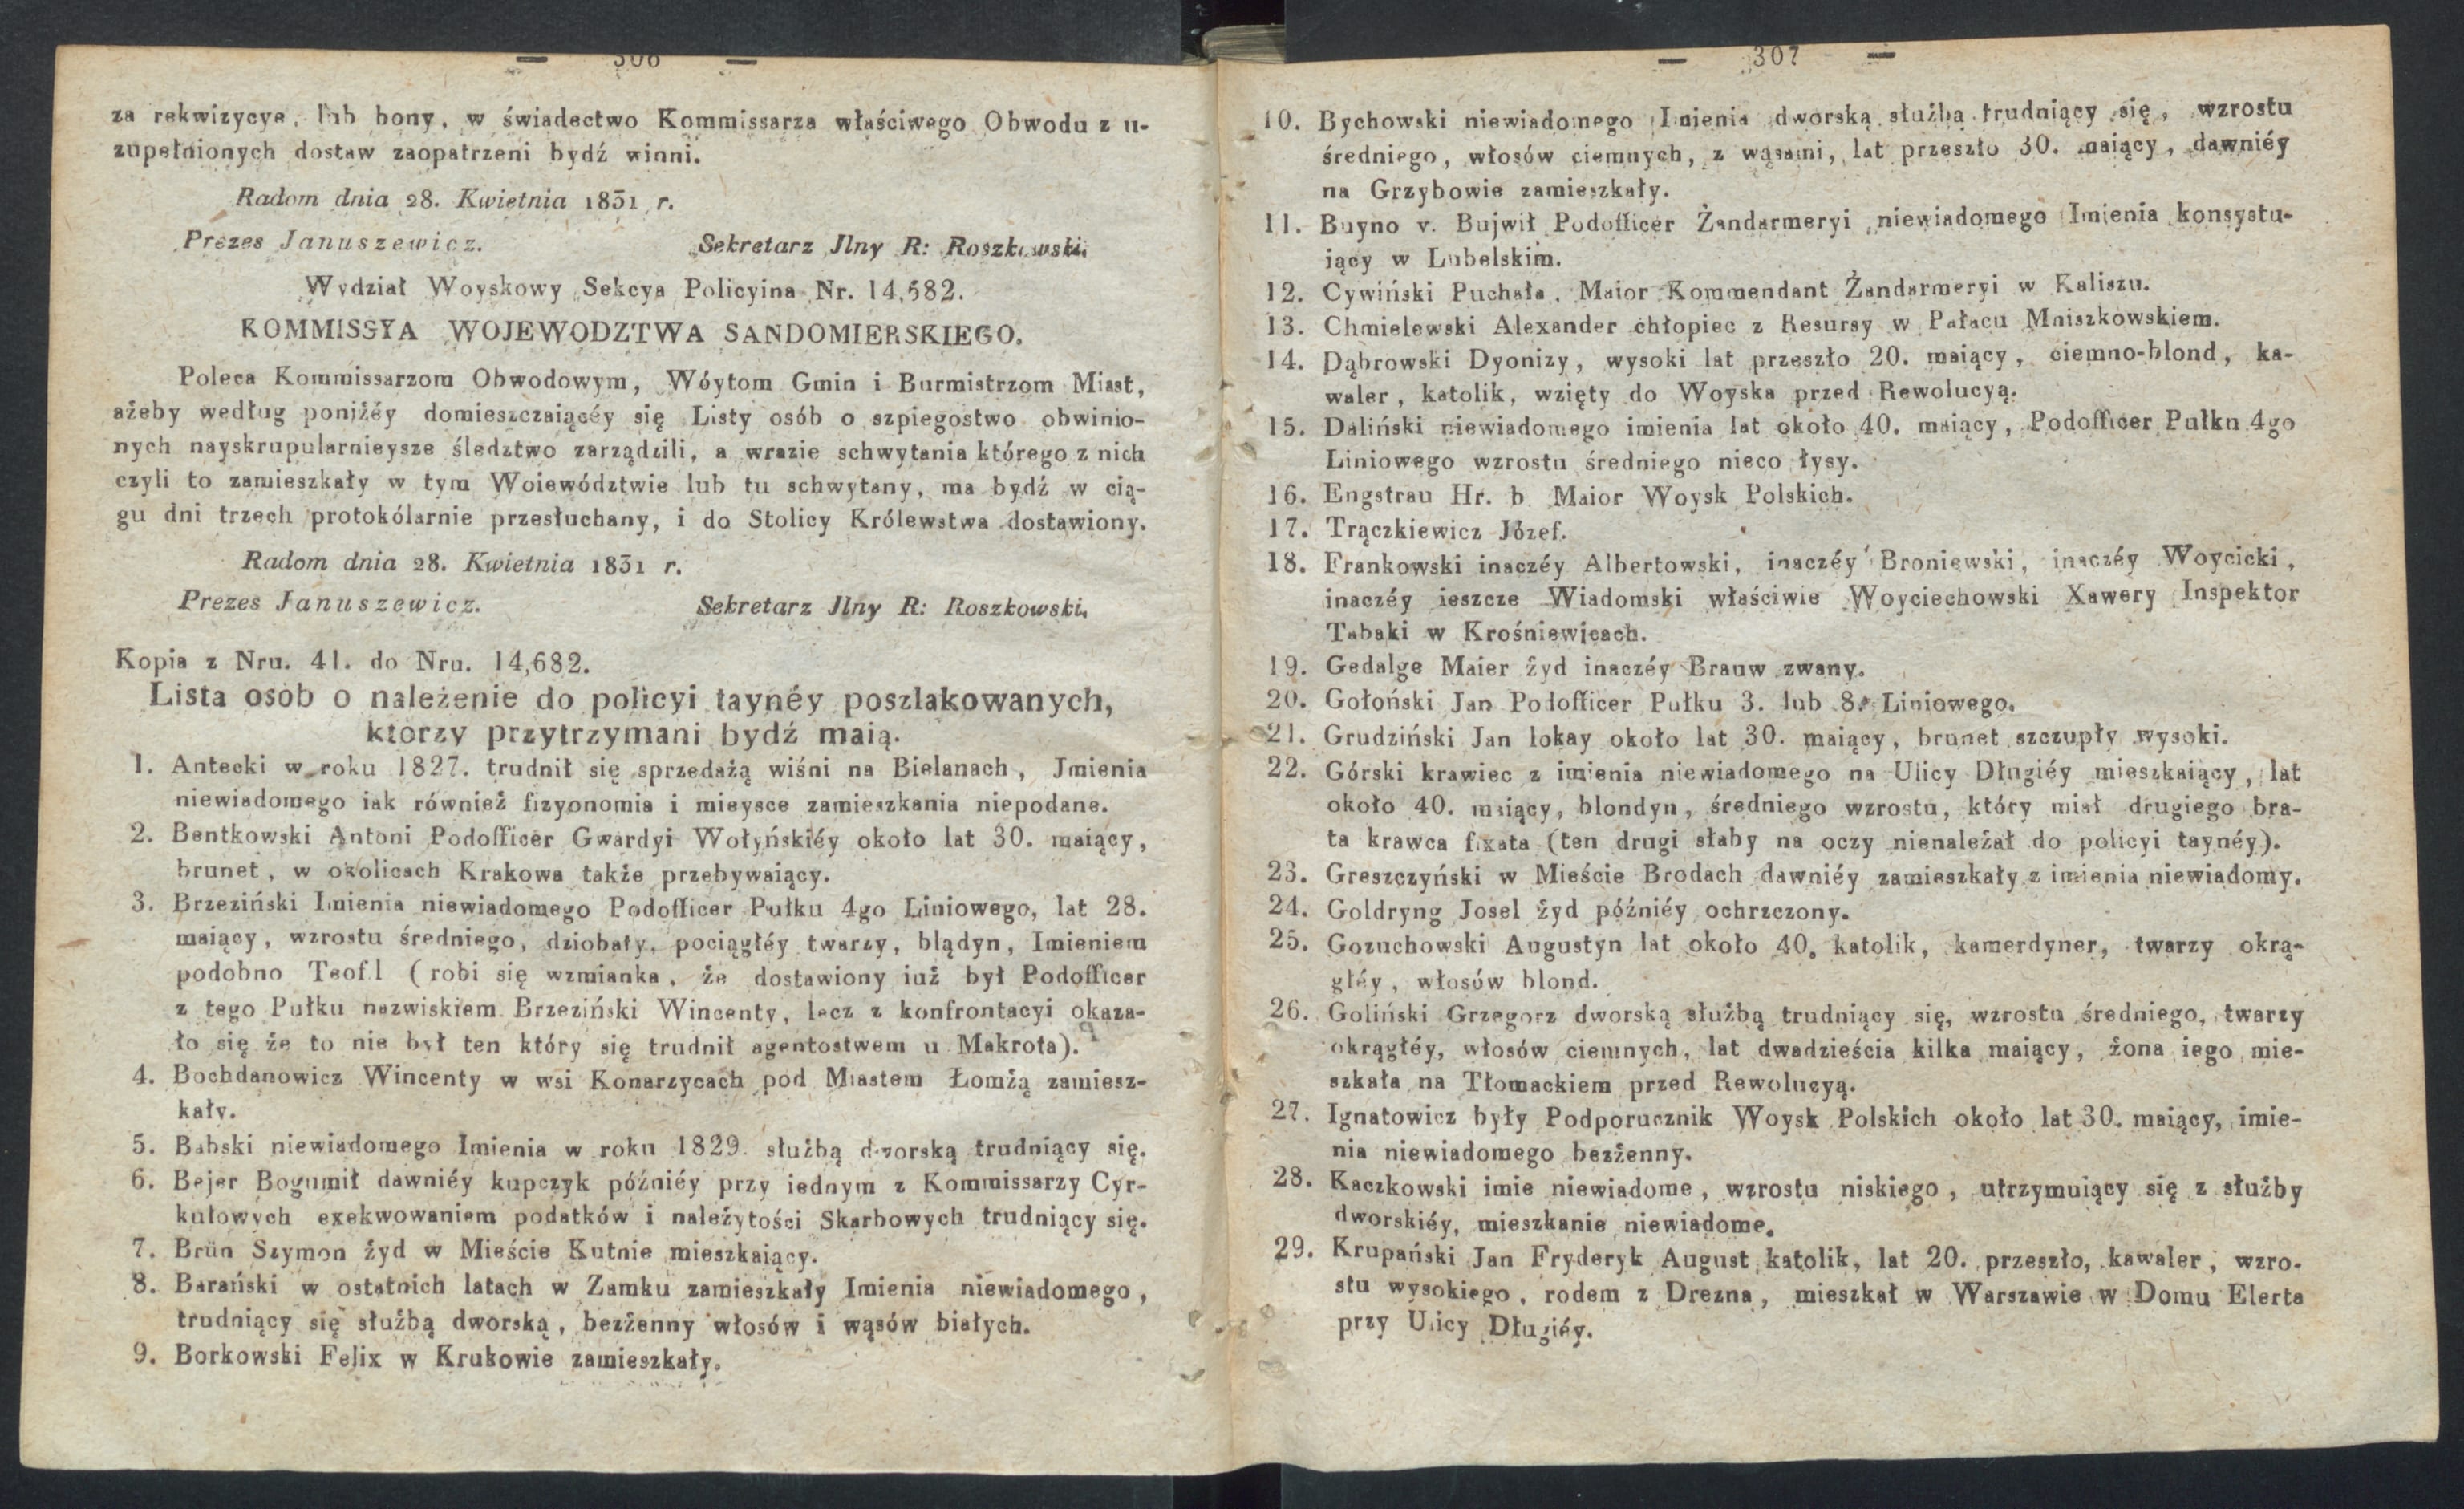 — 306 —
za rekwizycye, lub bony, w świadectwo Kommissarza właściwego Obwodu z u-
zupełnionych dostaw zaopatrzeni bydź winni.
Radom dnia 28. Kwietnia 1831 r.
Prezes Januszewicz. Sekretarz Jlny R: Roszkowski.
Wydział Woyskowy Sekcya Policyina Nr. 14,682.
KOMMISSYA WOJEWODZTWA SANDOMIERSKIEGO.
Poleca Kommissarzom Obwodowym, Wóytom Gmin i Burmistrzom Miast,
ażeby według poniżéy domieszczaiącéy się Listy osób o szpiegostwo obwinio-
nych nayskrupularnieysze śledztwo zarządzili, a wrazie schwytania którego z nich
czyli to zamieszkały w tym Woiewództwie lub tu schwytany, ma bydź w cią-
gu dni trzech protokólarnie przesłuchany, i do Stolicy Królewstwa dostawiony.
Radom dnia 28. Kwietnia 1831 r.
Prezes Januszewicz. Sekretarz Jlny R: Roszkowski.
Kopia z Nru. 41. do Nru. 14,682.
Lista osób o należenie do policyi taynéy poszlakowanych,
ktorzy przytrzymani bydź maią.
1. Antecki w roku 1827. trudnił się sprzedażą wiśni na Bielanach, Jmienia
niewiadomego iak również fizyonomia i mieysce zamieszkania niepodane.
2. Bentkowski Antoni Podofficer Gwardyi Wołyńskiéy około lat 30. maiący,
brunet, w okolicach Krakowa także przebywaiący.
3. Brzeziński Imienia niewiadomego Podofficer Pułku 4go Liniowego, lat 28.
maiący, wzrostu średniego, dziobaty, pociągłéy twarzy, blądyn, Imieniem
podobno Teofil (robi się wzmianka, że dostawiony iuż był Podofficer
z tego Pułku nazwiskiem Brzeziński Wincenty, lecz z konfrontacyi okaza-
ło się że to nie był ten który się trudnił agentostwem u Makrota).
4. Bochdanowicz Wincenty w wsi Konarzycach pod Miastem Łomżą zamiesz-
kały.
5. Babski niewiadomego Imienia w roku 1829. służbą dworską trudniący się.
6. Bejer Bogumił dawniéy kupczyk późniéy przy iednym z Kommissarzy Cyr-
kułowych exekwowaniem podatków i należytości Skarbowych trudniący się.
7. Brün Szymon żyd w Mieście Kutnie mieszkaiący.
8. Barański w ostatnich latach w Zamku zamieszkały Imienia niewiadomego,
trudniący się służbą dworską, bezżenny włosów i wąsów białych.
9. Borkowski Felix w Krukowie zamieszkały.
— 307 —
10. Bychowski niewiadomego Imienia dworską służbą trudniący się, wzrostu
średniego, włosów ciemnych, z wąsami, lat przeszło 30. maiący, dawniéy
na Grzybowie zamieszkały.
11. Buyno v. Bujwił Podofficer Żandarmeryi niewiadomego Imienia konsystu-
iący w Lubelskim.
12. Cywiński Puchała, Maior Kommendant Żandarmeryi w Kaliszu.
13. Chmielewski Alexander chłopiec z Resursy w Pałacu Mniszkowskiem.
14. Dąbrowski Dyonizy, wysoki lat przeszło 20. maiący, ciemno-blond, ka-
waler, katolik, wzięty do Woyska przed Rewolucyą.
15. Daliński niewiadomego imienia lat około 40. maiący, Podofficer Pułku 4go
Liniowego wzrostu średniego nieco łysy.
16. Engstrau Hr. b. Maior Woysk Polskich.
17. Trączkiewicz Józef.
18. Frankowski inaczéy Albertowski, inaczéy Broniewski, inaczéy Woycicki,
inaczéy ieszcze Wiadomski właściwie Woyciechowski Xawery Inspektor
Tabaki w Krośniewicach.
19. Gedalge Maier żyd inaczéy Brauw zwany.
20. Gołoński Jan Podofficer Pułku 3. lub 8. Liniowego.
21. Grudziński Jan lokay około lat 30. maiący, brunet szczupły wysoki.
22. Górski krawiec z imienia niewiadomego na Ulicy Długiéy mieszkaiący, lat
około 40. maiący, blondyn, średniego wzrostu, który miał drugiego bra-
ta krawca fixata (ten drugi słaby na oczy nienależał do policyi taynéy).
23. Greszczyński w Mieście Brodach dawniéy zamieszkały z imienia niewiadomy.
24. Goldryng Josel żyd późniéy ochrzczony.
25. Gozuchowski Augustyn lat około 40. katolik, kamerdyner, twarzy okrą-
gléy, włosów blond.
26. Goliński Grzegorz dworską służbą trudniący się, wzrostu średniego, twarzy
okrągłéy, włosów ciemnych, lat dwadzieścia kilka maiący, żona iego mie-
szkała na Tłomackiem przed Rewolucyą.
27. Ignatowicz były Podporucznik Woysk Polskich około lat 30. maiący, imie-
nia niewiadomego bezżenny.
28. Kaczkowski imie niewiadome, wzrostu niskiego, utrzymuiący się z służby
dworskiéy, mieszkanie niewiadome.
29. Krupański Jan Fryderyk August katolik, lat 20. przeszło, kawaler, wzro-
stu wysokiego, rodem z Drezna, mieszkał w Warszawie w Domu Elerta
przy Ulicy Długiéy.